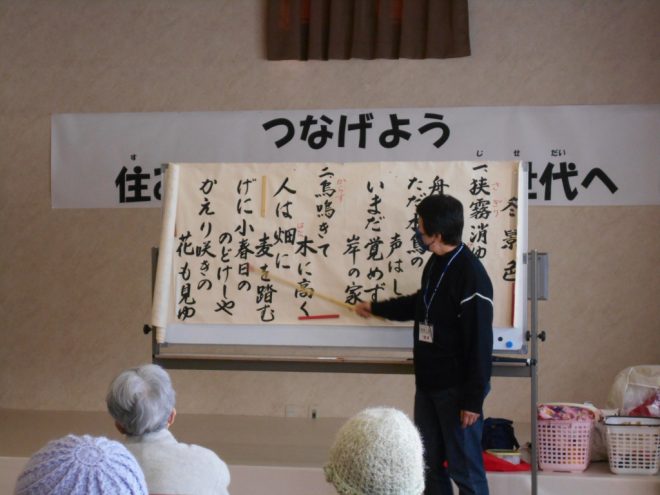 つなげよう
す
住
じせだい
世代へ
冬景色
さぎり
一、狭霧消ゆ
舟
ただ水鳥の
声はし
いまだ覚めず
岸の家
からす
二、烏鳴きて
木に高く
はた
人は畑に
麦を踏む
げに小春日の
のどけしや
かえり咲きの
花も見ゆ